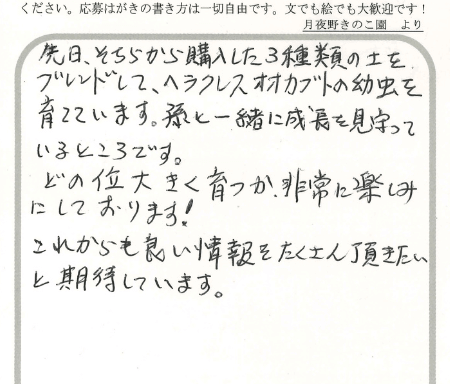 ください。応募はがきの書き方は一切自由です。文でも絵でも大歓迎です！
月夜野きのこ園　より
先日、そちらから購入した3種類の土を
ブレンドして、ヘラクレスオオカブトの幼虫を
育てています。孫と一緒に成長を見守って
いるところです。
どの位大きく育つか、非常に楽しみ
にしております！
これからも良い情報をたくさん頂きたい
と期待しています。